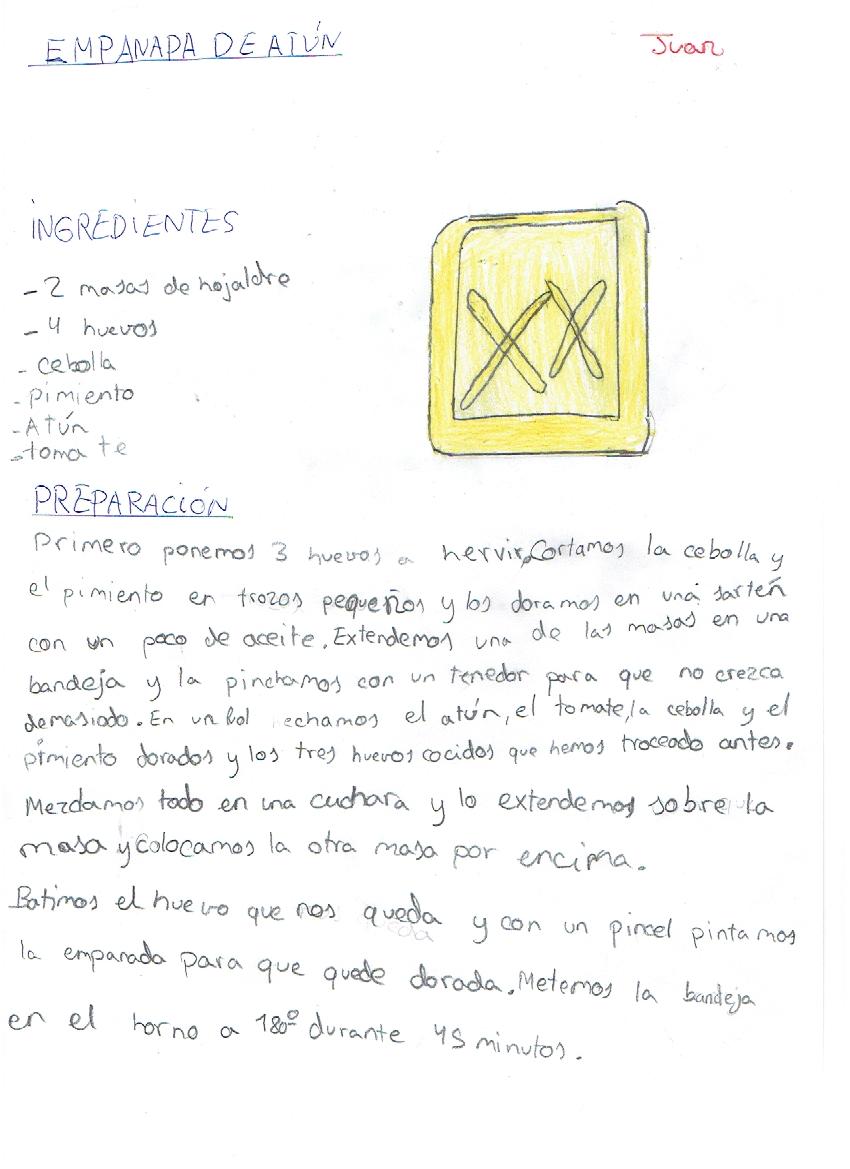 EMPANADA DE ATÚN
Juan
INGREDIENTES
- 2 masas de hojaldre
- 4 huevos
- cebolla
- pimiento
- Atún
- tomate
PREPARACIÓN
Primero ponemos 3 huevos a hervir. Cortamos la cebolla y
el pimiento en trozos pequeños y los doramos en una sarteń
con un poco de aceite. Extendemos una de las masas en una
bandeja y la pinchamos con un tenedor para que no crezca
demasiado. En un bol echamos el atún, el tomate, la cebolla y el
pimiento dorados y los tres huevos cocidos que hemos troceado antes.
Mezclamos todo en una cuchara y lo extendemos sobre la
masa y colocamos la otra masa por encima.
Batimos el huevo que nos queda y con un pincel pintamos
la empanada para que quede dorada. Metemos la bandeja
en el horno a 180º durante 45 minutos.